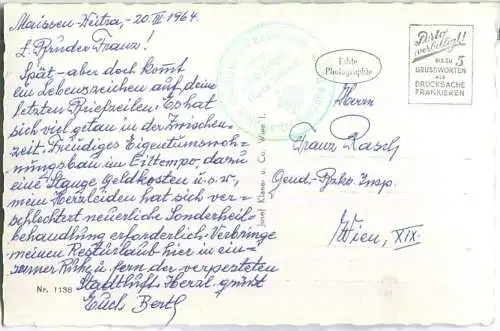 Maissen-Neitra, -20. III 1964.
L. Pfründer Franz!
Spät - aber doch kommt
ein Lebenszeichen auf deine
letzten Briefzeilen. Es hat
sich viel getan in der Zwischen-
zeit. Freudiges Eigentumswoh-
nungsbau im Eiltempo, dazu
eine Stange Geldkosten u.s.w.,
mein Herzleiden hat sich ver-
schlechtert neuerliche Sonderheil-
behandlung erforderlich. Verbringe
meinen Resturlaub hier in ein-
samer Ruhe u. fern der verpesteten
Stadtluft. Herzl. grüsst
Euch Bertl
Nr. 1138
Josef Klaner u. Co. Wien I.
Echte
Photographie
Porto
verbilligt!
BIS ZU 5
GRUSSWORTEN
ALS
DRUCKSACHE
FRANKIEREN
Herrn
Franz Rasch
Gend. Insp.
Wien, XIX.